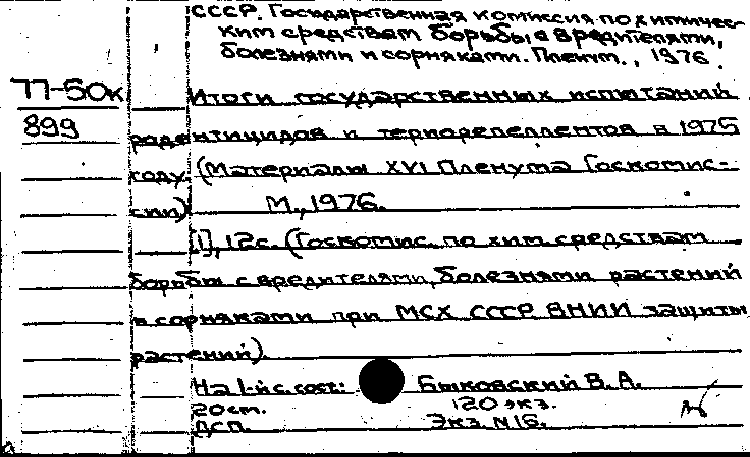 СССР. Государственная комиссия по химичес-
ким средствам борьбы с вредителями,
болезнями и сорняками. Пленум., 1976.
77-50к
899
Итоги государственных испытаний
родентицидов и териорепеллентов в 1975
году. (Материалы XVI Пленума Госкомис-
сии) М., 1976.
[1], 12с. (Госкомис. по хим средствам
борьбы с вредителями, болезнями растений
и сорняками при МСХ СССР ВНИИ защиты
растений).
На 1-й с. сост: Быковский В. А.
20см. 120 экз.
ДСП. Экз. N 16.